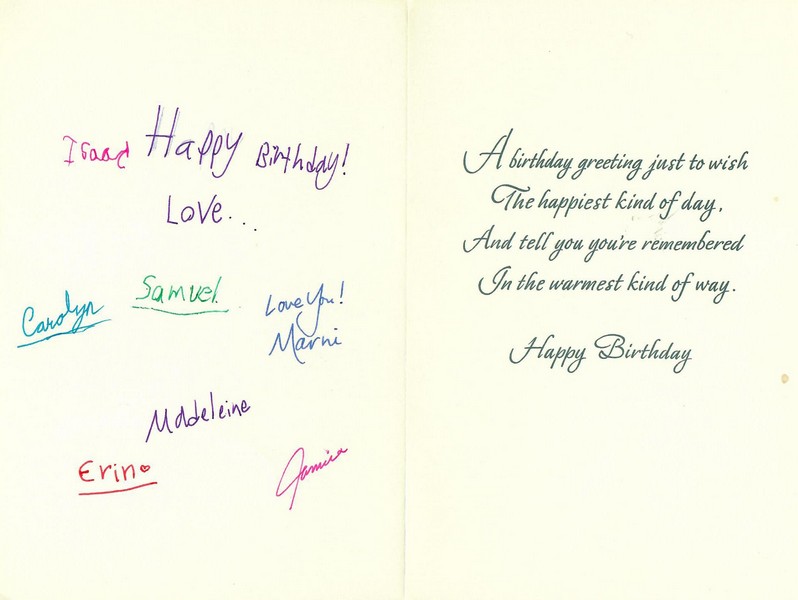 Happy Birthday!
Love...
Samuel
Carolyn
Love You!
Marni
Madeleine
Erin
A birthday greeting just to wish
The happiest kind of day,
And tell you you're remembered
In the warmest kind of way.
Happy Birthday